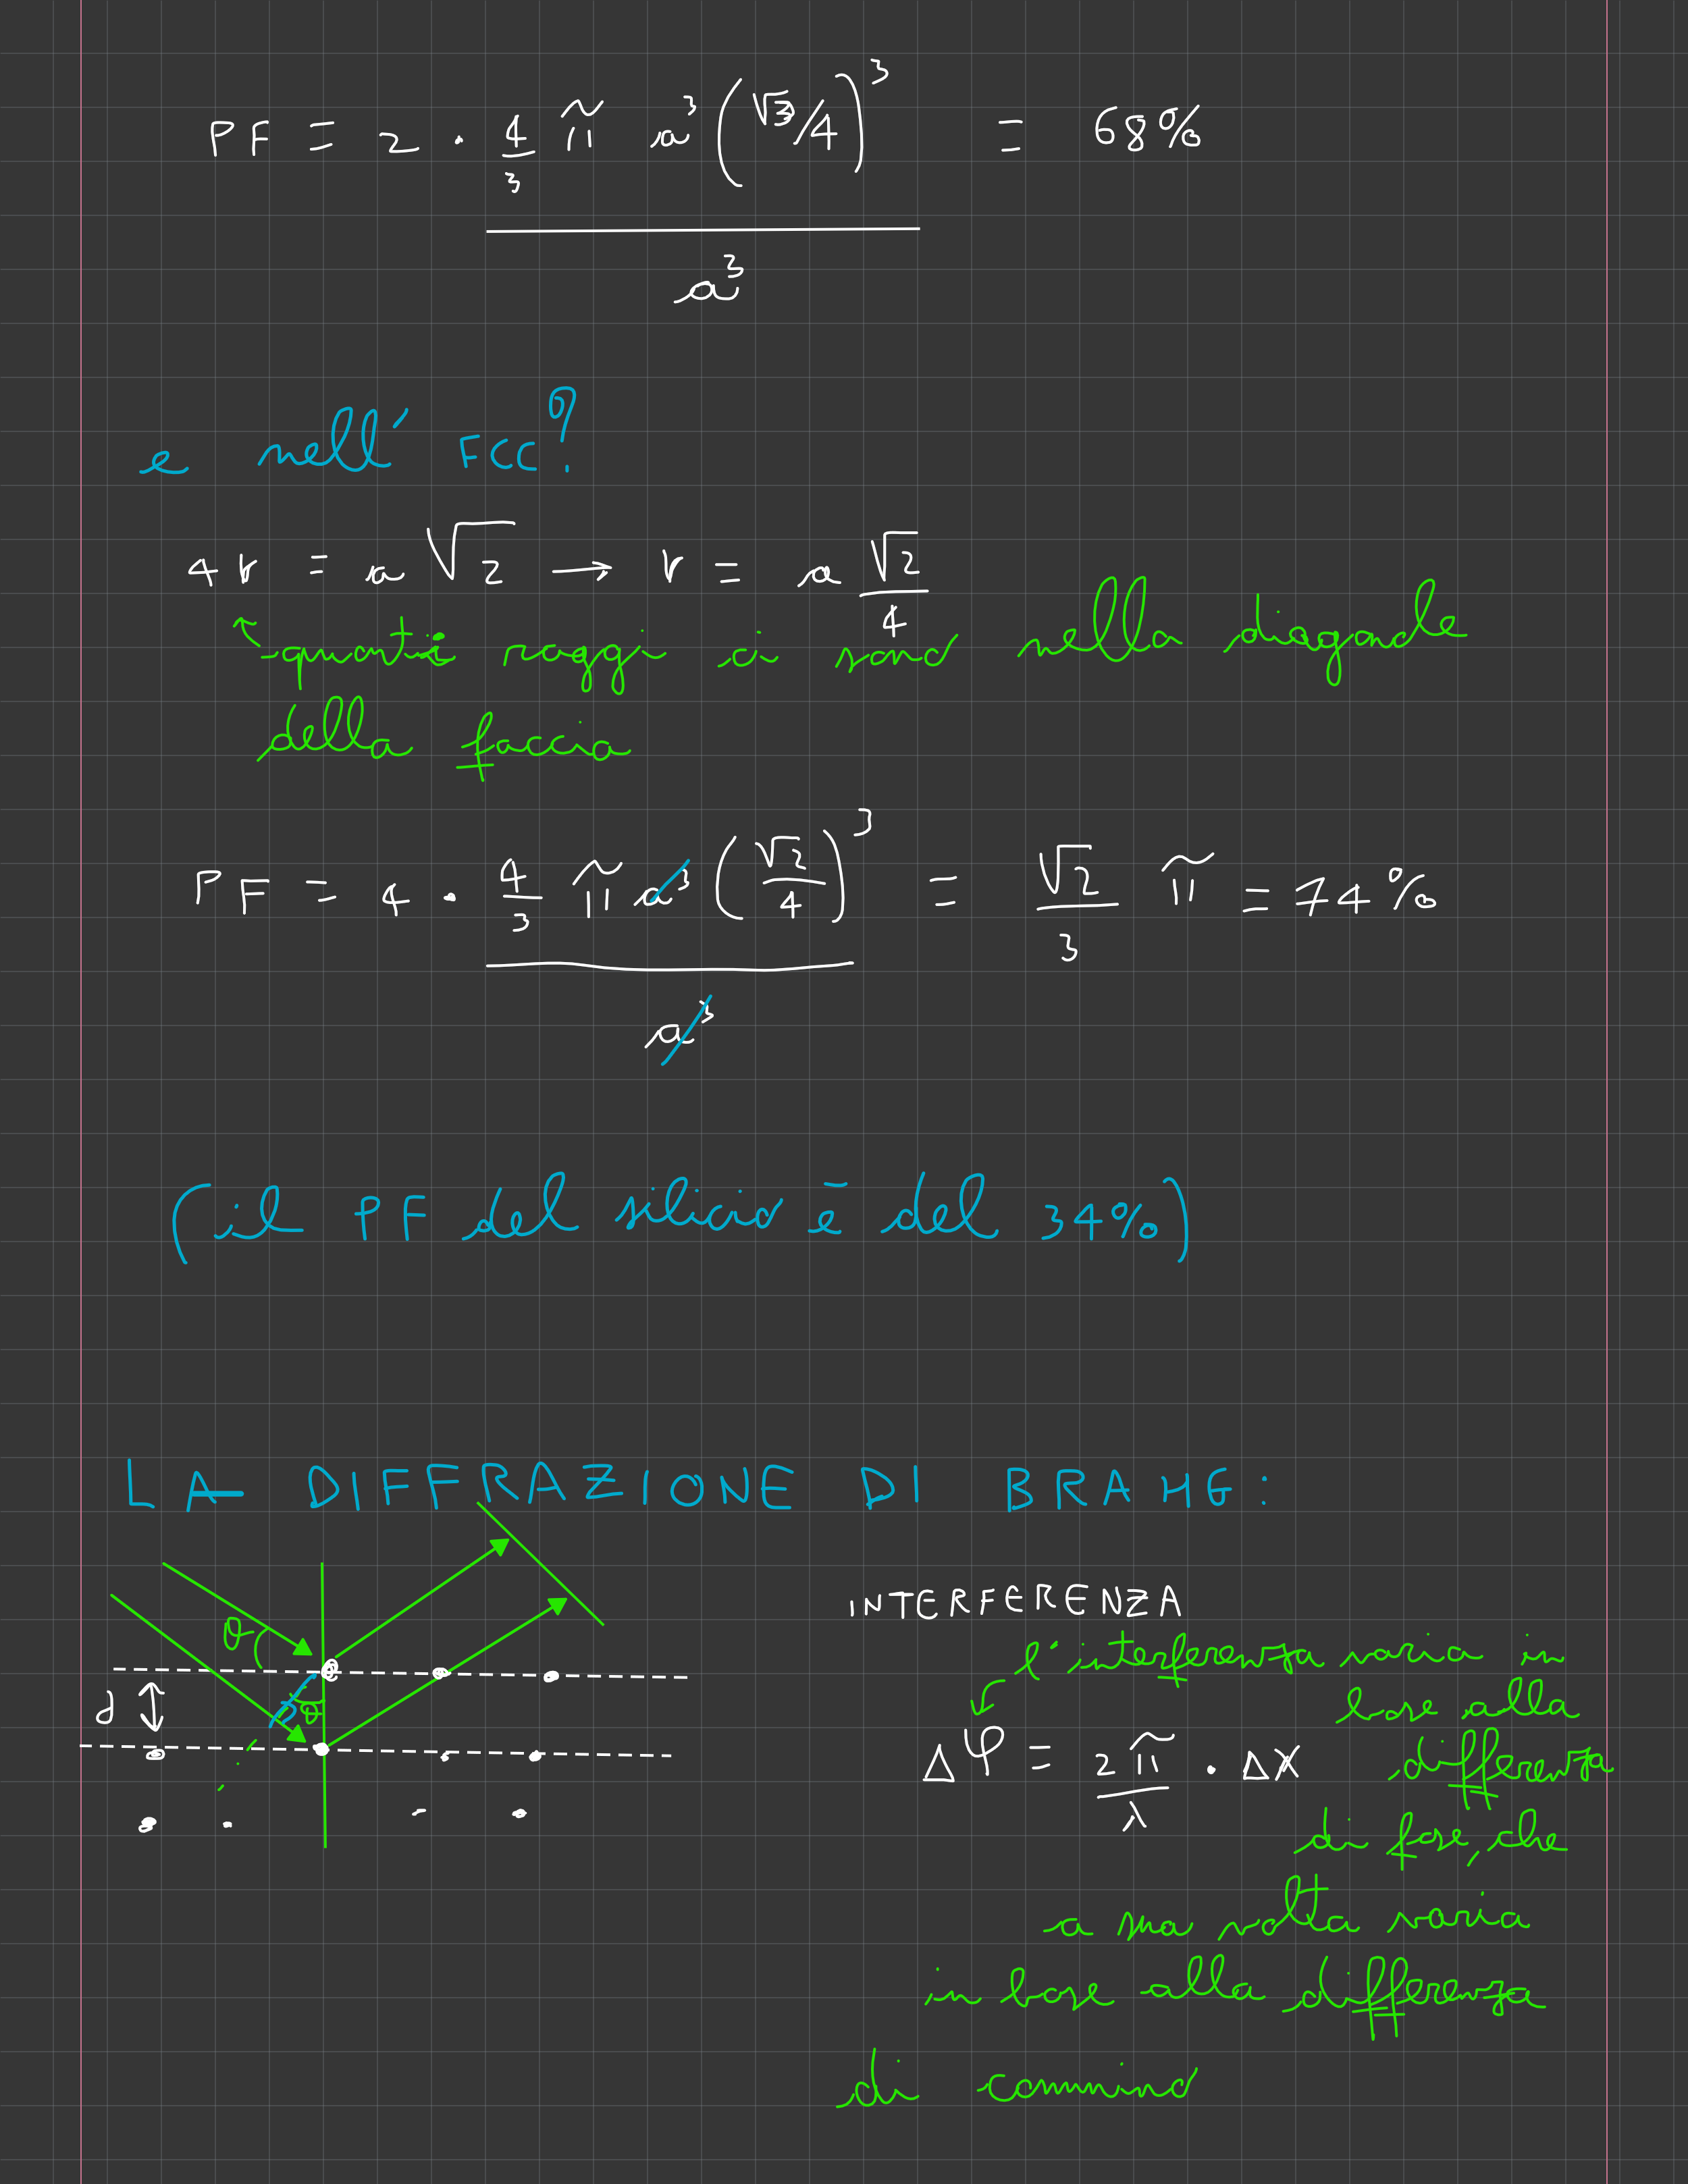 PF = 2 · 4/3 π a³ (√3/4)³ / a³ = 68%
e nell' FCC?
4r = a √2 → r = a √2/4
quanti raggi ci sono nella diagonale
della faccia
PF = 4 · 4/3 π a³ (√2/4)³ / a³ = √2/3 π = 74%
(il PF del silicio è del 34%)
LA DIFFRAZIONE DI BRAHG:
INTERFERENZA
θ
l'interferenza varia in
base alla
d
θ
Δφ = 2π/λ · Δx
differenza
di fase, che
a sua volta varia
in base alla differenza
di cammino